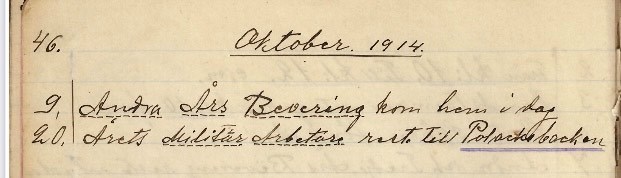 46. Oktober. 1914.
9. Andra Års Bevering kom hem i dag
20. Årets Militär Arbetare reste till Polacksbacken